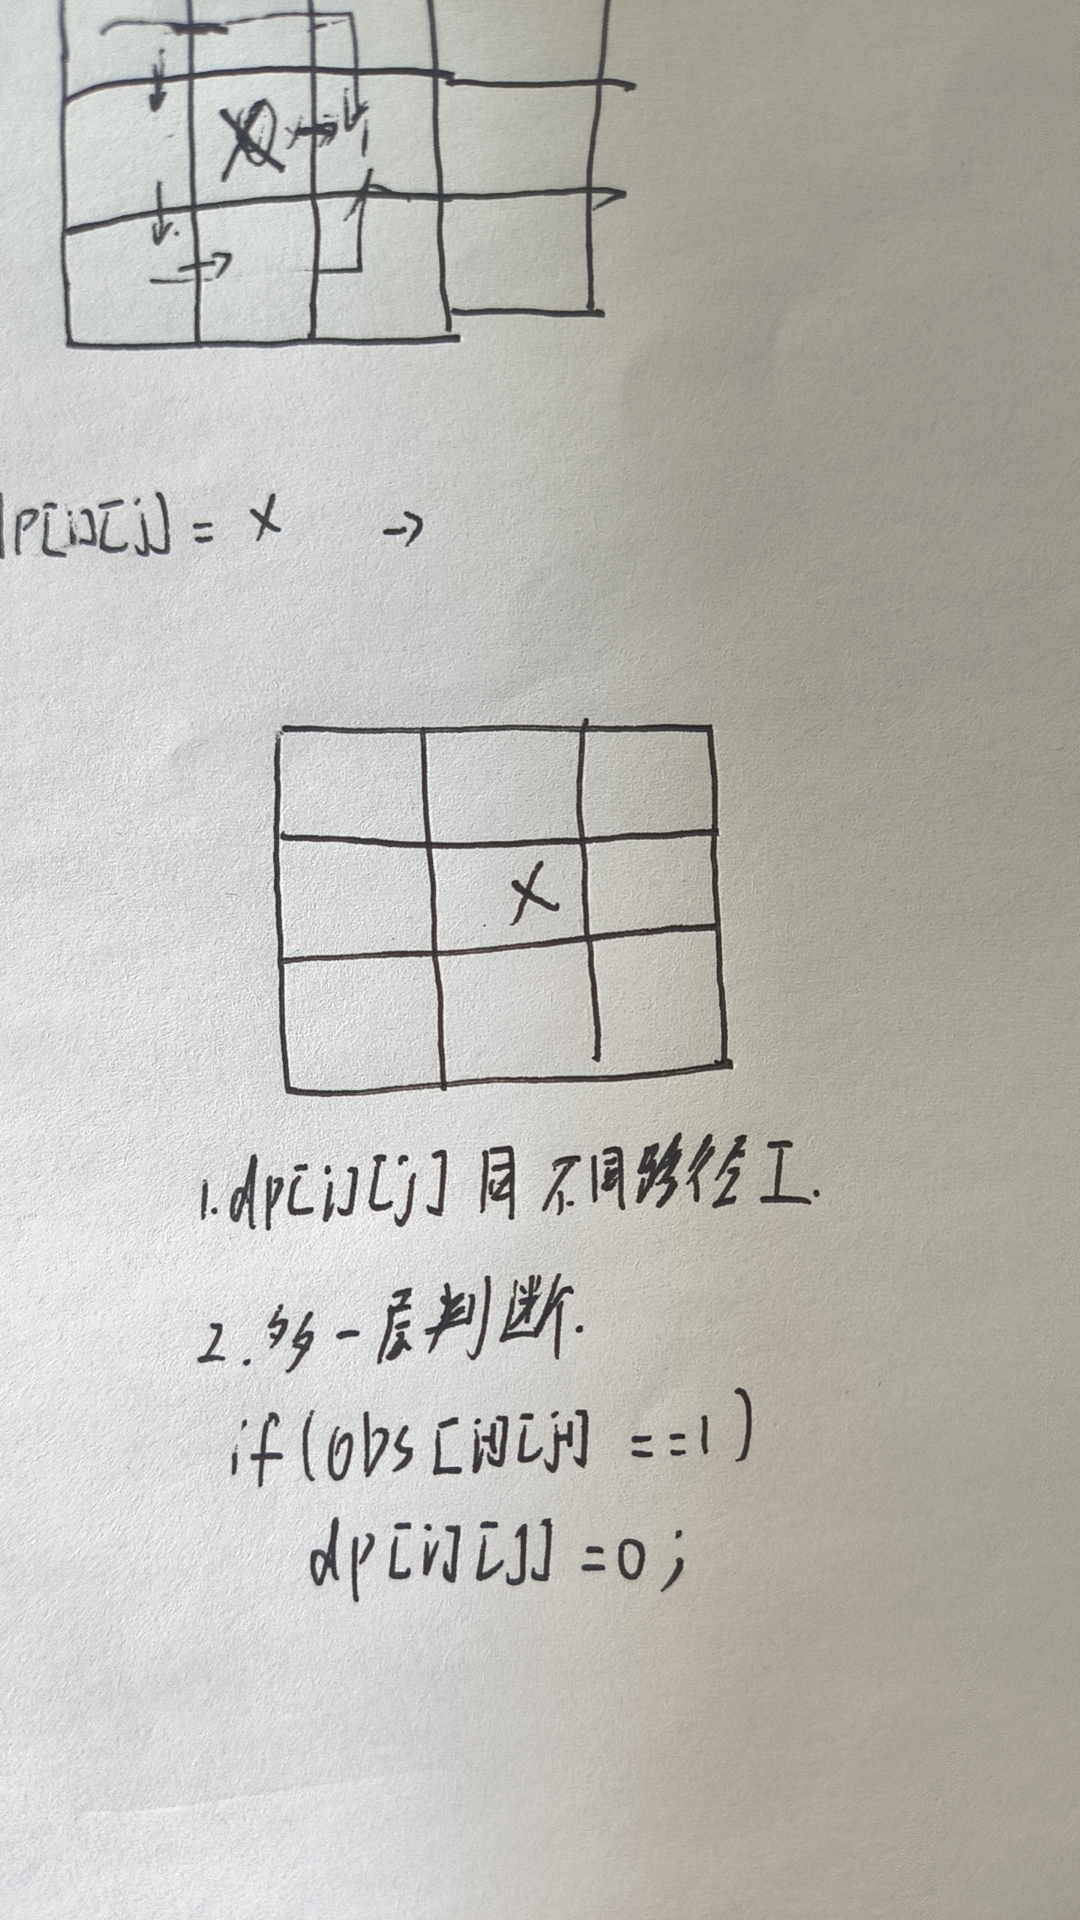 dp[i][j] = x →
x
1. dp[i][j] 同 不同路径 I.
2. 多一层判断.
if(obs[i-1][j-1] ==1)
dp[i][j] =0;